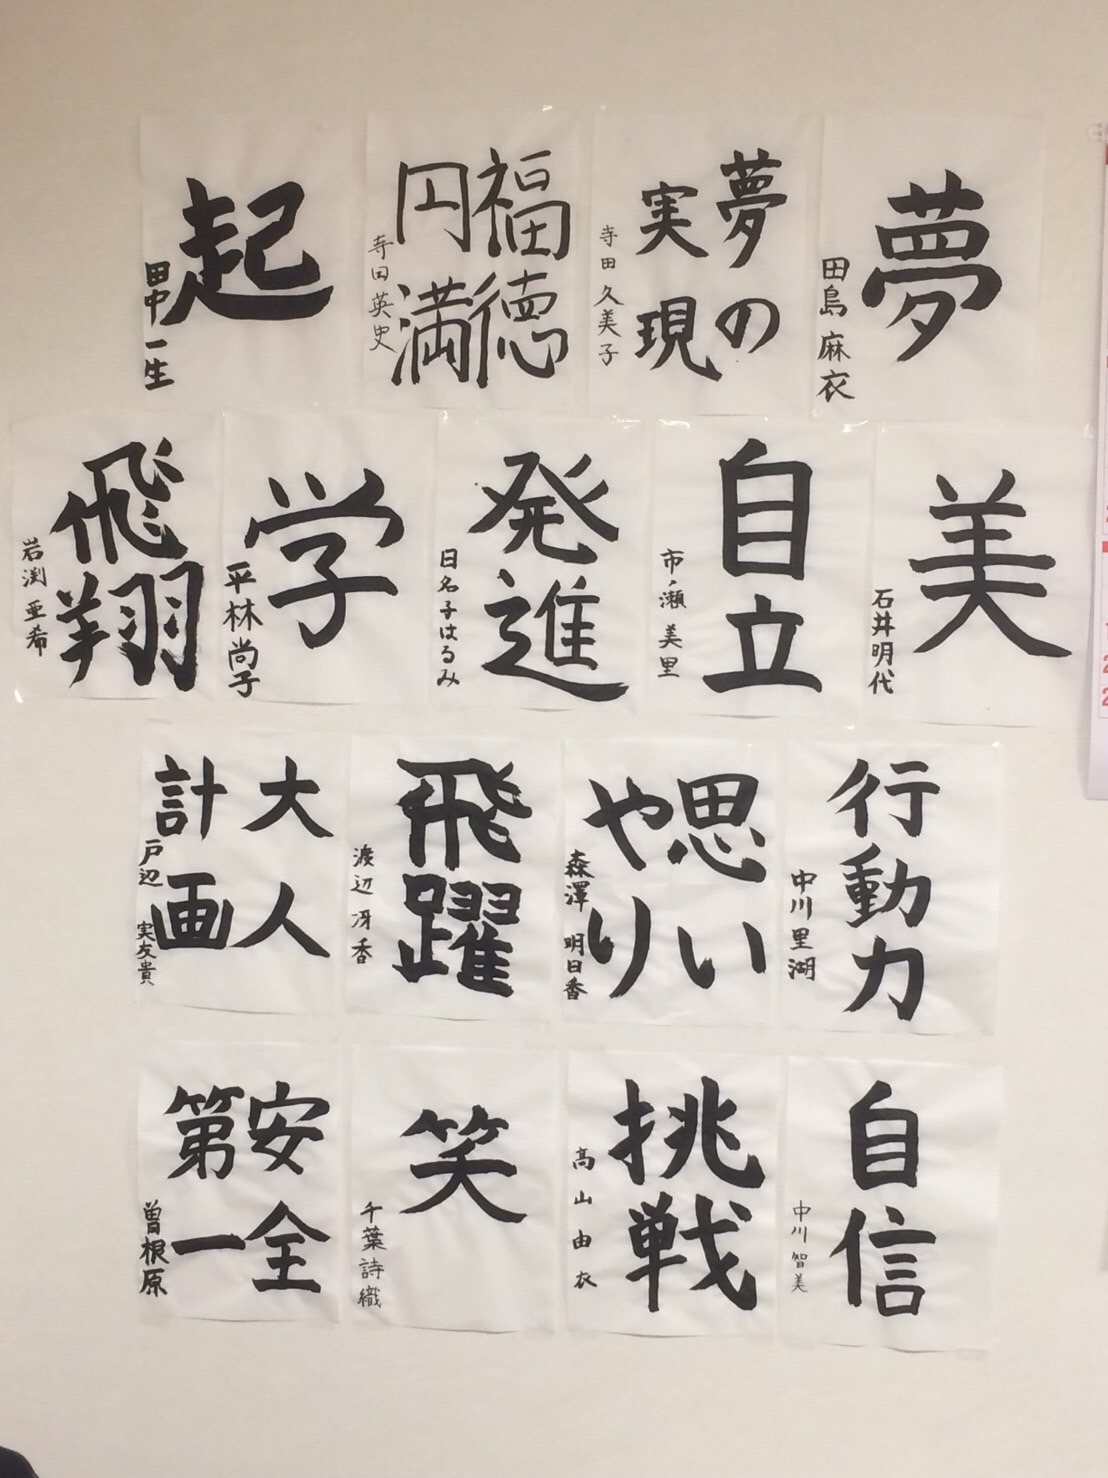 夢
田島 麻衣
夢の
実現
寺田 久美子
福徳
円満
寺田英史
起
田中一生
美
石井明代
自立
市ノ瀬 美里
発進
日名子はるみ
学
平林尚子
飛翔
岩渕 亜希
行動力
中川里湖
思い
やり
森澤 明日香
飛躍
渡辺 冴香
大人
計画
戸辺 実友貴
自信
中川 智美
挑戦
高山由衣
笑
千葉詩織
安全
第一
曽根原